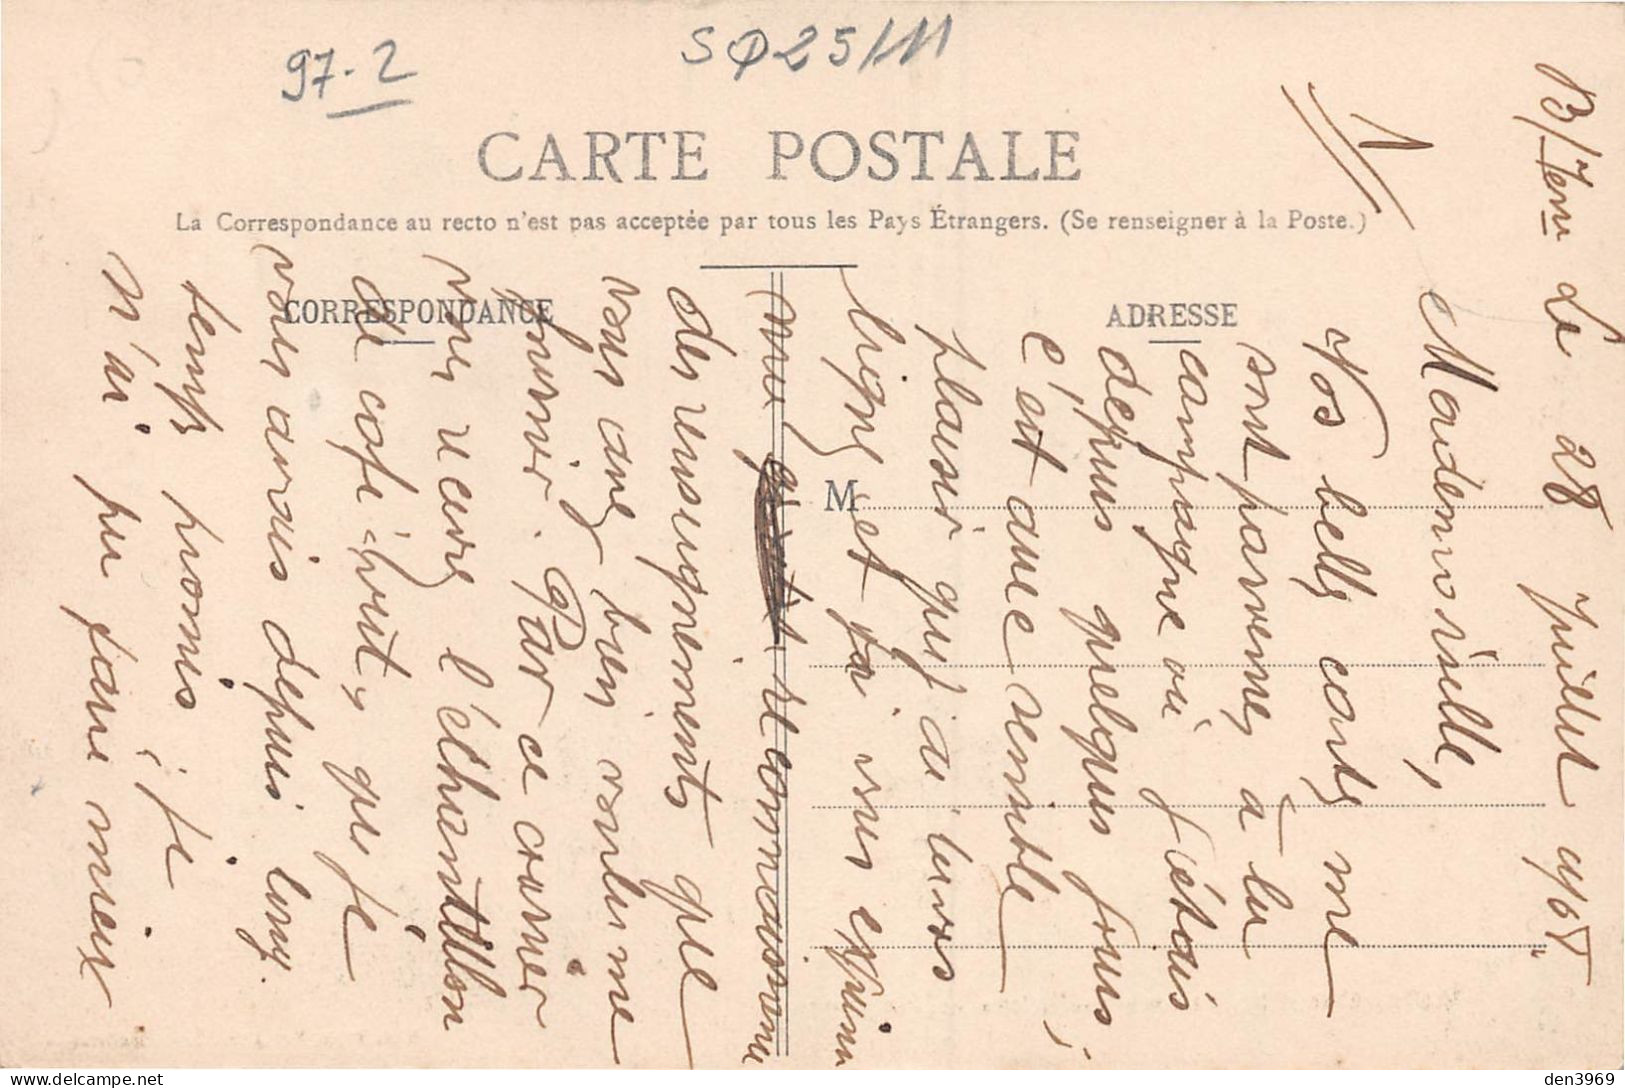 97-2
CARTE POSTALE
La Correspondance au recto n'est pas acceptée par tous les Pays Étrangers. (Se renseigner à la Poste.)
CORRESPONDANCE
ADRESSE
M
1
le 28 Juillet
Mademoiselle,
Vos belles cartes me
sont parvenues à la
campagne où j'étais
depuis quelques jours ;
c'est avec sensible
plaisir que j'ai lu vos
lignes et je vous exprime
ma reconnaissance
des renseignements que
vous avez bien voulu me
fournir. Par ce courrier
vous recevez l'échantillon
de café-bruit, que je
vous avais depuis long-
temps promis ; je
n'ai pu faire mieux
den3969